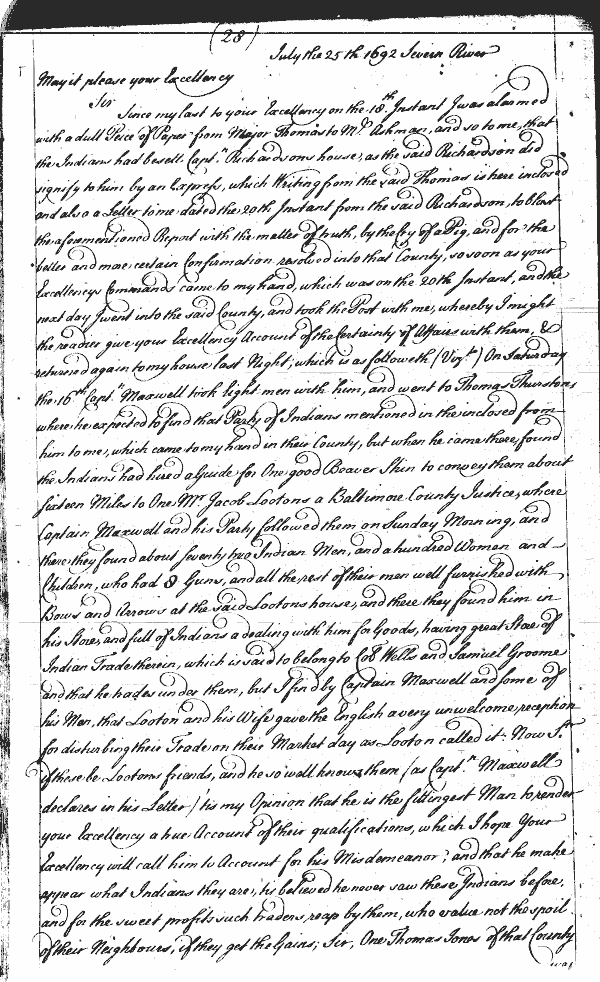 (28)
July the 25th 1692 Severn River
May it please your Excellency
Sir
Since my last to your Excellency on the 18th. Instant I was alarmed
with a dull Peice of Paper from Major Thomas to Mr. Ashman, and so to me, that
the Indians had besett Capt.n Richardsons house, as the said Richardson did
signify to him by an Express, which Writing from the said Thomas is here inclosed
and also a Letter to me dated the 20th Instant from the said Richardson, to blast
the aforementioned Report with the matter of truth, by the Cry of a Pig, and for the
better and more certain Confirmation resolved into that County, so soon as your
Excellencys Commands came to my hand, which was on the 20th Instant, and the
next day I went into the said County, and took the Post with me, whereby I might
the readier give your Excellency Account of the Certainty of Affairs with them, &
returned again to my house last Night; which is as followeth (Vizt.) On Saturday
the 16th Capt.n Maxwell took Eight men with him, and went to Thomas Thurstons
where he expected to find that Party of Indians mentioned in the inclosed from
him to me, which came to my hand in their County, but when he came there, found
the Indians had hired a Guide for One good Beaver Skin to convey them about
sixteen Miles to One Mr Jacob Lootons a Baltimore County Justice, where
Captain Maxwell and his Party followed them on Sunday Morning, and
there they found about seventy two Indian Men, and a hundred Women and
Children, who had 8 Guns, and all the rest of their men well furnished with
Bows and Arrows at the said Lootons house, and there they found him in
his Store, and full of Indians a dealing with him for Goods, having great Store of
Indian Trade therein, which is said to belong to Col Wells and Samuel Groome
and that he trades under them, but I find by Captain Maxwell and some of
his Men, that Looton and his Wife gave the English a very unwelcome reception
for disturbing their Trade on their Market day as Looton called it. Now Sr.
if these be Lootons friends, and he so well knows them (as Capt.n Maxwell
declares in his Letter) tis my Opinion that he is the fittingest Man to render
your Excellency a true Account of their qualifications, which I hope Your
Excellency will call him to Account for his Misdemeanor; and that he make
appear what Indians they are; tis believed he never saw these Indians before,
and for the sweet profits such traders reap by them, who value not the spoil
of their Neighbours, if they get the Gains; Sir, One Thomas Jones of that County
was